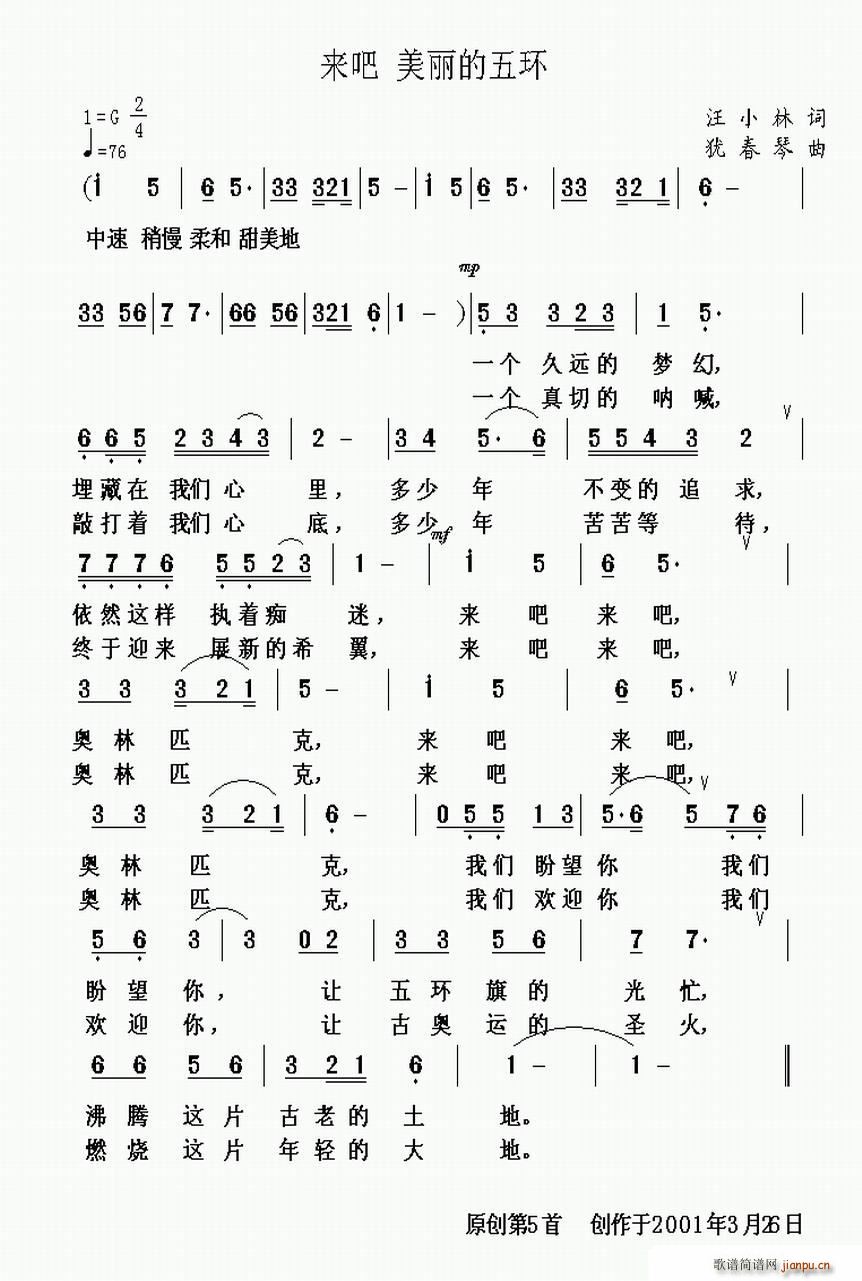 来吧 美丽的五环
1=G 2/4
♩=76
汪小林 词
犹春琴 曲
(i 5 | 6 5· | 33 321 | 5 － | i 5 | 6 5· | 33 32 1 | 6 － |
中速 稍慢 柔和 甜美地
mp
33 56 | 7 7· | 66 56 | 321 6 | 1 － ) | 5 3 3 2 3 | 1 5· |
一个 久远的 梦幻,
一个 真切的 呐喊,
6 6 5 2 3 4 3 | 2 － | 3 4 5· 6 | 5 5 4 3 2 V |
埋藏在 我们心 里, 多少年 不变的追求,
敲打着 我们心 底, 多少年 苦苦等 待,
mf
7 7 7 6 5 5 2 3 | 1 － | i 5 | 6 5· V |
依然这样 执着痴 迷, 来 吧 来 吧,
终于迎来 展新的希 翼, 来 吧 来 吧,
3 3 3 2 1 | 5 － | i 5 | 6 5· V |
奥林匹 克, 来 吧 来 吧,
奥林匹 克, 来 吧 来 吧,
3 3 3 2 1 | 6 － | 0 5 5 1 3 | 5·6 5 7 6 V |
奥林匹 克, 我们 盼望你 我们
奥林匹 克, 我们 欢迎你 我们
5 6 3 | 3 0 2 | 3 3 5 6 | 7 7· V |
盼望你, 让 五环旗的 光忙,
欢迎你, 让 古奥运的 圣火,
6 6 5 6 | 3 2 1 6 | 1 － | 1 － ‖
沸腾这片 古老的土 地。
燃烧这片 年轻的大 地。
原创第5首 创作于2001年3月26日
歌谱简谱网
jianpu.cn